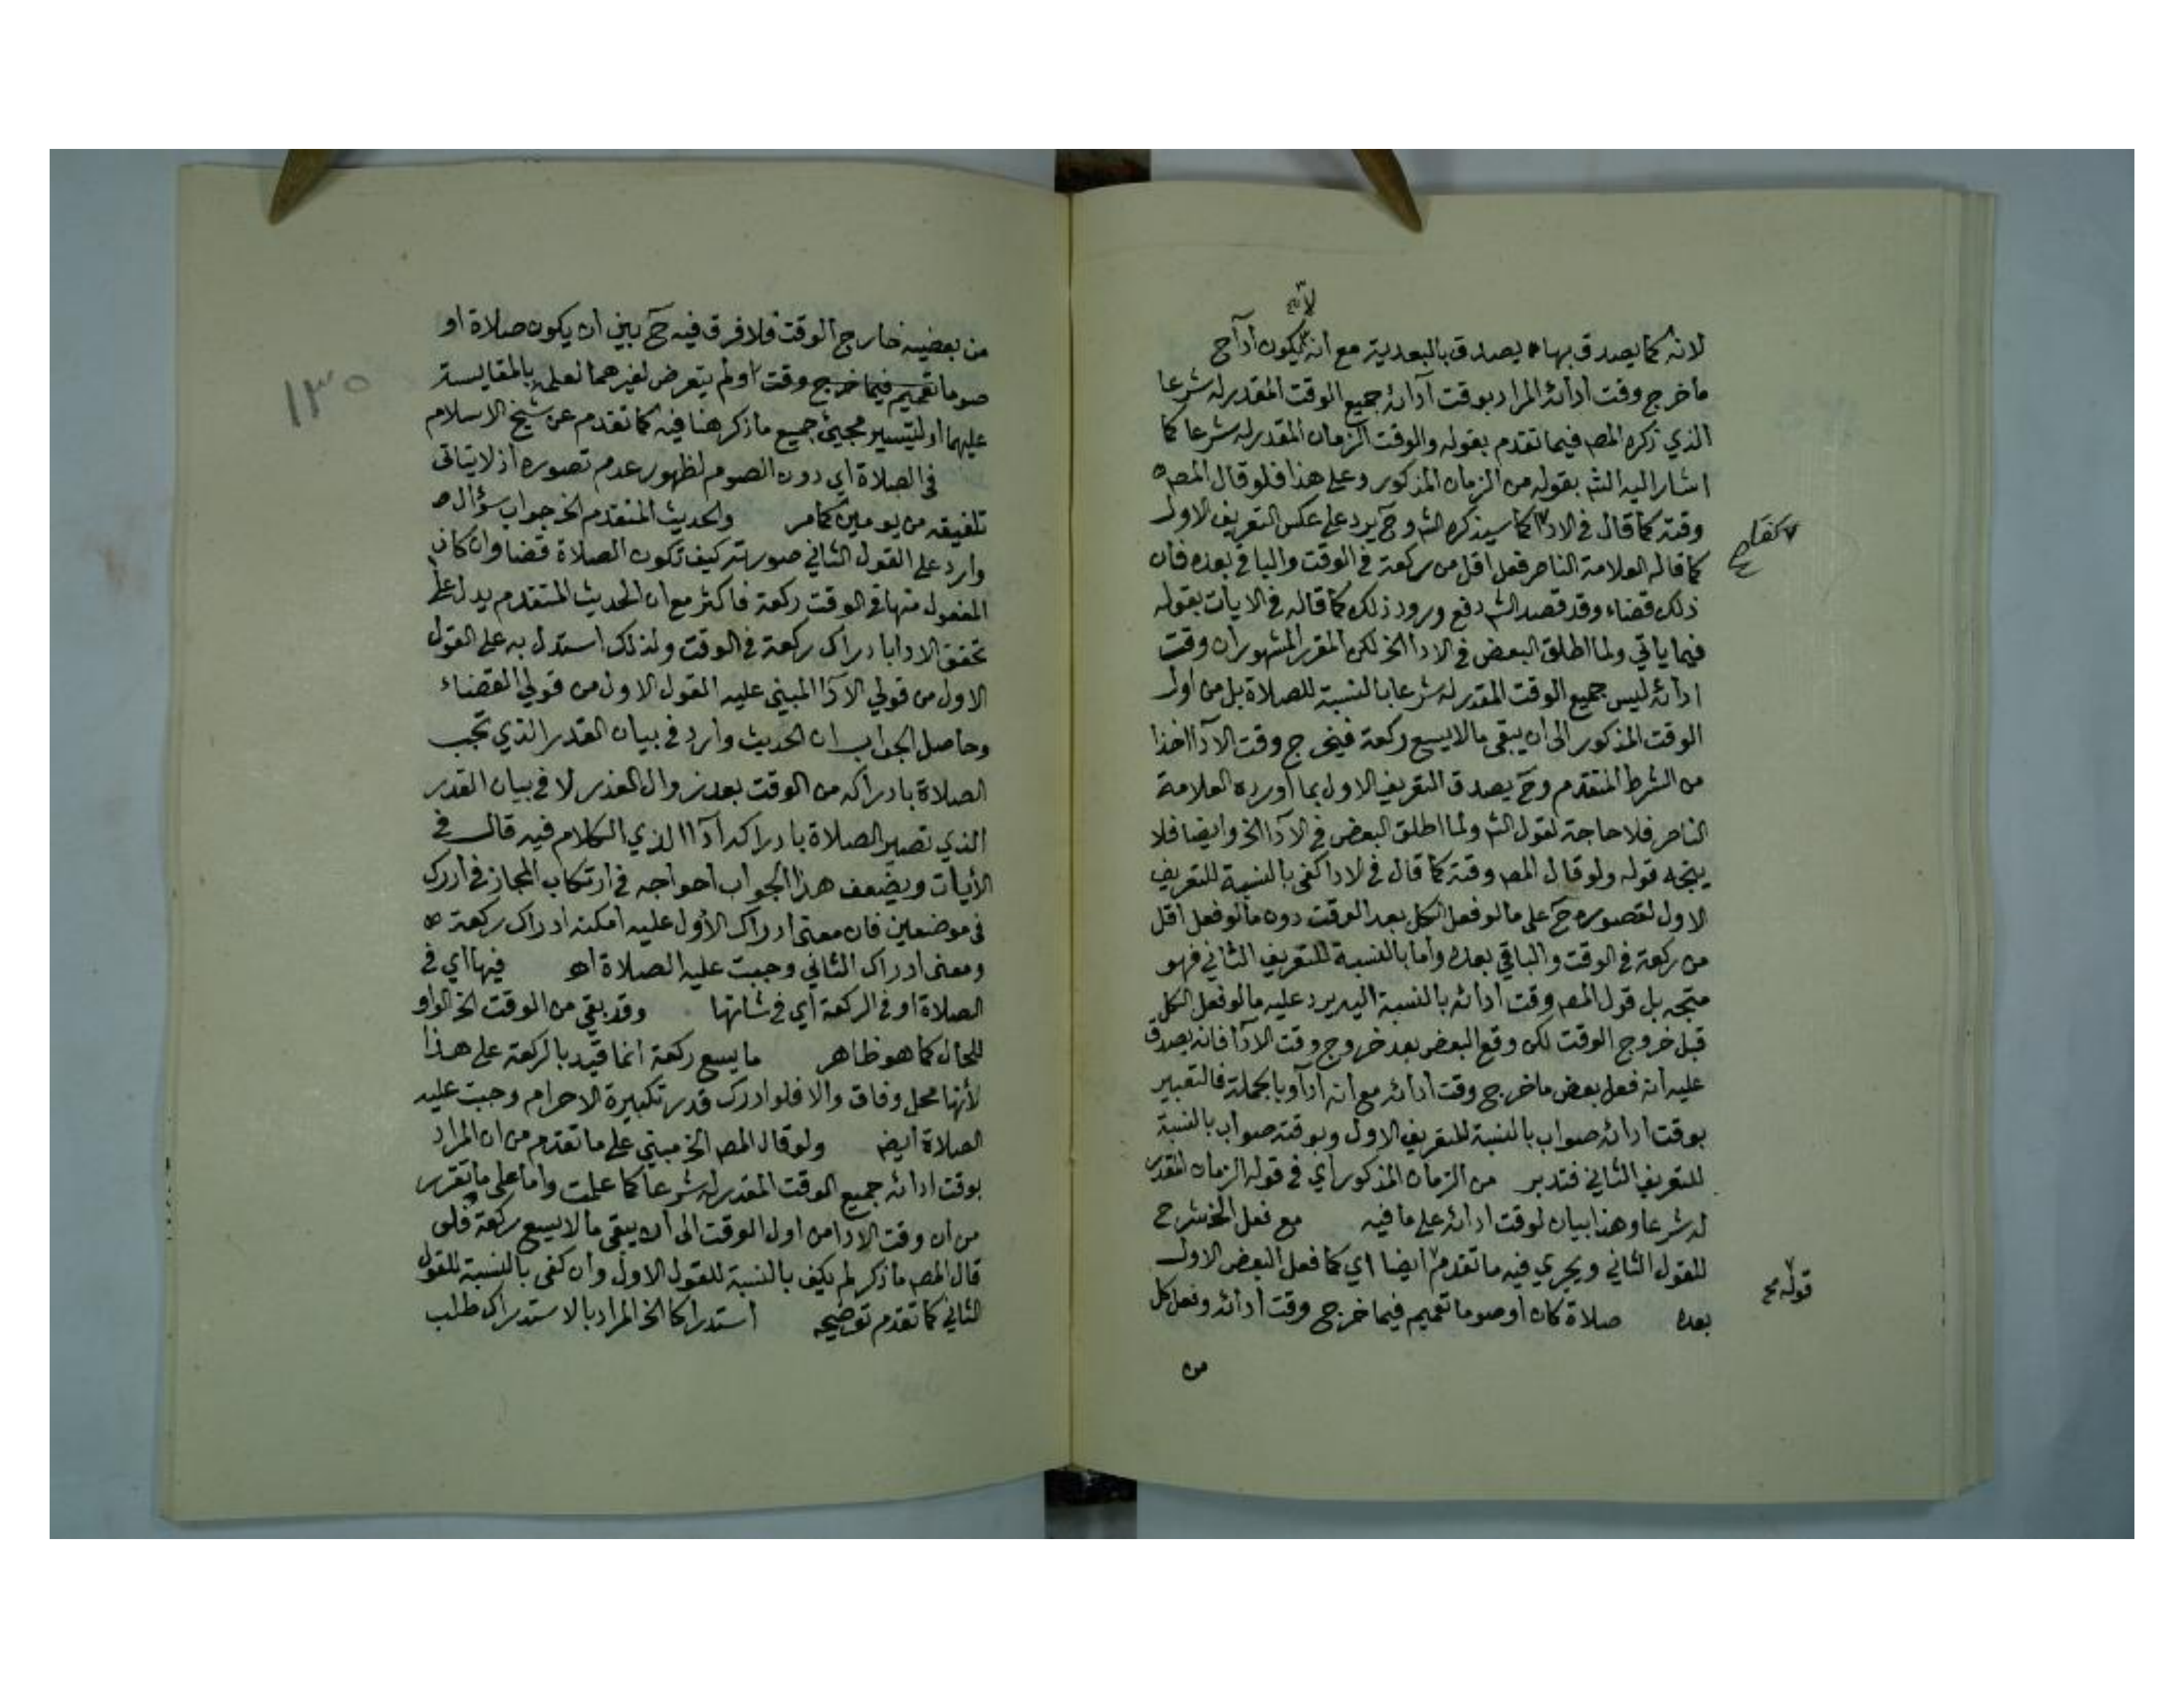 لا صح
لانه كما يصدق بها يصدق بالبعدية مع انه يكون اداً ح
ما خرج وقت ادائه المراد بوقت ادائه جميع الوقت المقدر له شرعا
الذي ذكره المصـ فيما تقدم بقوله والوقت الزمان المقدر له شرعا كما
اشار اليه الشـ بقوله من الزمان المذكور وعلى هذا فلو قال المصـ
وقته كما قال في الادا كما سيذكره الشـ وح يرد على عكس التعريف الاول
كفا صح
كما قاله العلامة الناصر فعل اقل من ركعة في الوقت والباقي بعده فان
ذلك قضاء وقد قصد الشـ دفع ورود ذلك كما قاله في الايات بقوله
فيما ياتي ولما اطلق البعض في الادا الخ لكن المقرر المشهور ان وقت
ادائه ليس جميع الوقت المقدر له شرعا بالنسبة للصلاة بل من اول
الوقت المذكور الى ان يبقى ما لا يسع ركعة فيخرج وقت الادا اخذا
من الشرط المتقدم وح يصدق التعريف الاول بما اورده العلامة
الناصر فلا حاجة لقول الشـ ولما اطلق البعض في الادا الخ وايضا فلا
يتجه قوله ولو قال المصـ وقته كما قال في الادا كفى بالنسبة للتعريف
الاول لقصوره ح على ما لو فعل الكل بعد الوقت دون ما لو فعل اقل
من ركعة في الوقت والباقي بعده واما بالنسبة للتعريف الثاني فهو
متجه بل قول المصـ وقت ادائه بالنسبة اليه يرد عليه ما لو فعل الكل
قبل خروج الوقت لكن وقع البعض بعد خروج وقت الادا فانه يصدق
عليه انه فعل بعض ما خرج وقت ادائه مع انه ادا وبالجملة فالتعبير
بوقت ادائه صواب بالنسبة للتعريف الاول وبوقته صواب بالنسبة
للتعريف الثاني فتدبر من الزمان المذكور اي في قوله الزمان المقدر
له شرعا وهذا بيان لوقت ادائه على ما فيه مع فعل الخ شرح
للقول الثاني ويجري فيه ما تقدم ايضا اي كما فعل البعض الاول
قوله صح
بعده صلاة كان او صوما تعميم فيما خرج وقت ادائه وفعل كل
من
١٣٥
من بعضيه خارج الوقت فلا فرق فيه ح بين ان يكون صلاة او
صوما تعميم فيما خرج وقت او لم يتعرض لغيرهما لعلمه بالمقايسة
عليهما او ليتيسر مجيئ جميع ما ذكر هنا فيه كما تقدم عن شيخ الاسلام
في الصلاة اي دون الصوم لظهور عدم تصوره اذ لا يتاتى
تلفيقه من يومين كما مر والحديث المتقدم الخ جواب سؤال
وارد على القول الثاني صورته كيف تكون الصلاة قضا وان كان
المفعول منها في الوقت ركعة فاكثر مع ان الحديث المتقدم يدل على
تحقق الادا بادراك ركعة في الوقت ولذلك استدل به على القول
الاول من قولي الادا المبني عليه القول الاول من قولي القضاء
وحاصل الجواب ان الحديث وارد في بيان القدر الذي تجب
الصلاة بادراكه من الوقت بعد زوال العذر لا في بيان القدر
الذي تصير الصلاة بادراكه ادا الذي الكلام فيه قال في
الأيات ويضعف هذا الجواب احواجه في ارتكاب المجاز في ادرك
في موضعين فان معنى ادراك الأول عليه امكنه ادراك ركعة
ومعنى ادراك الثاني وجبت عليه الصلاة اهـ فيها اي في
الصلاة او في الركعة اي في شانها وقد بقي من الوقت الخ الواو
للحال كما هو ظاهر ما يسع ركعة انما قيد بالركعة على هذا
لأنها محل وفاق والا فلو ادرك قدر تكبيرة الاحرام وجبت عليه
الصلاة ايضـ ولو قال المصـ الخ مبني على ما تقدم من ان المراد
بوقت ادائه جميع الوقت المقدر له شرعا كما علمت واما على ما تقرر
من ان وقت الادا من اول الوقت الى ان يبقى ما لا يسع ركعة فلو
قال المصـ ما ذكر لم يكف بالنسبة للقول الاول وان كفى بالنسبة للقول
الثاني كما تقدم توضيحه استدراكا الخ المراد بالاستدراك طلب